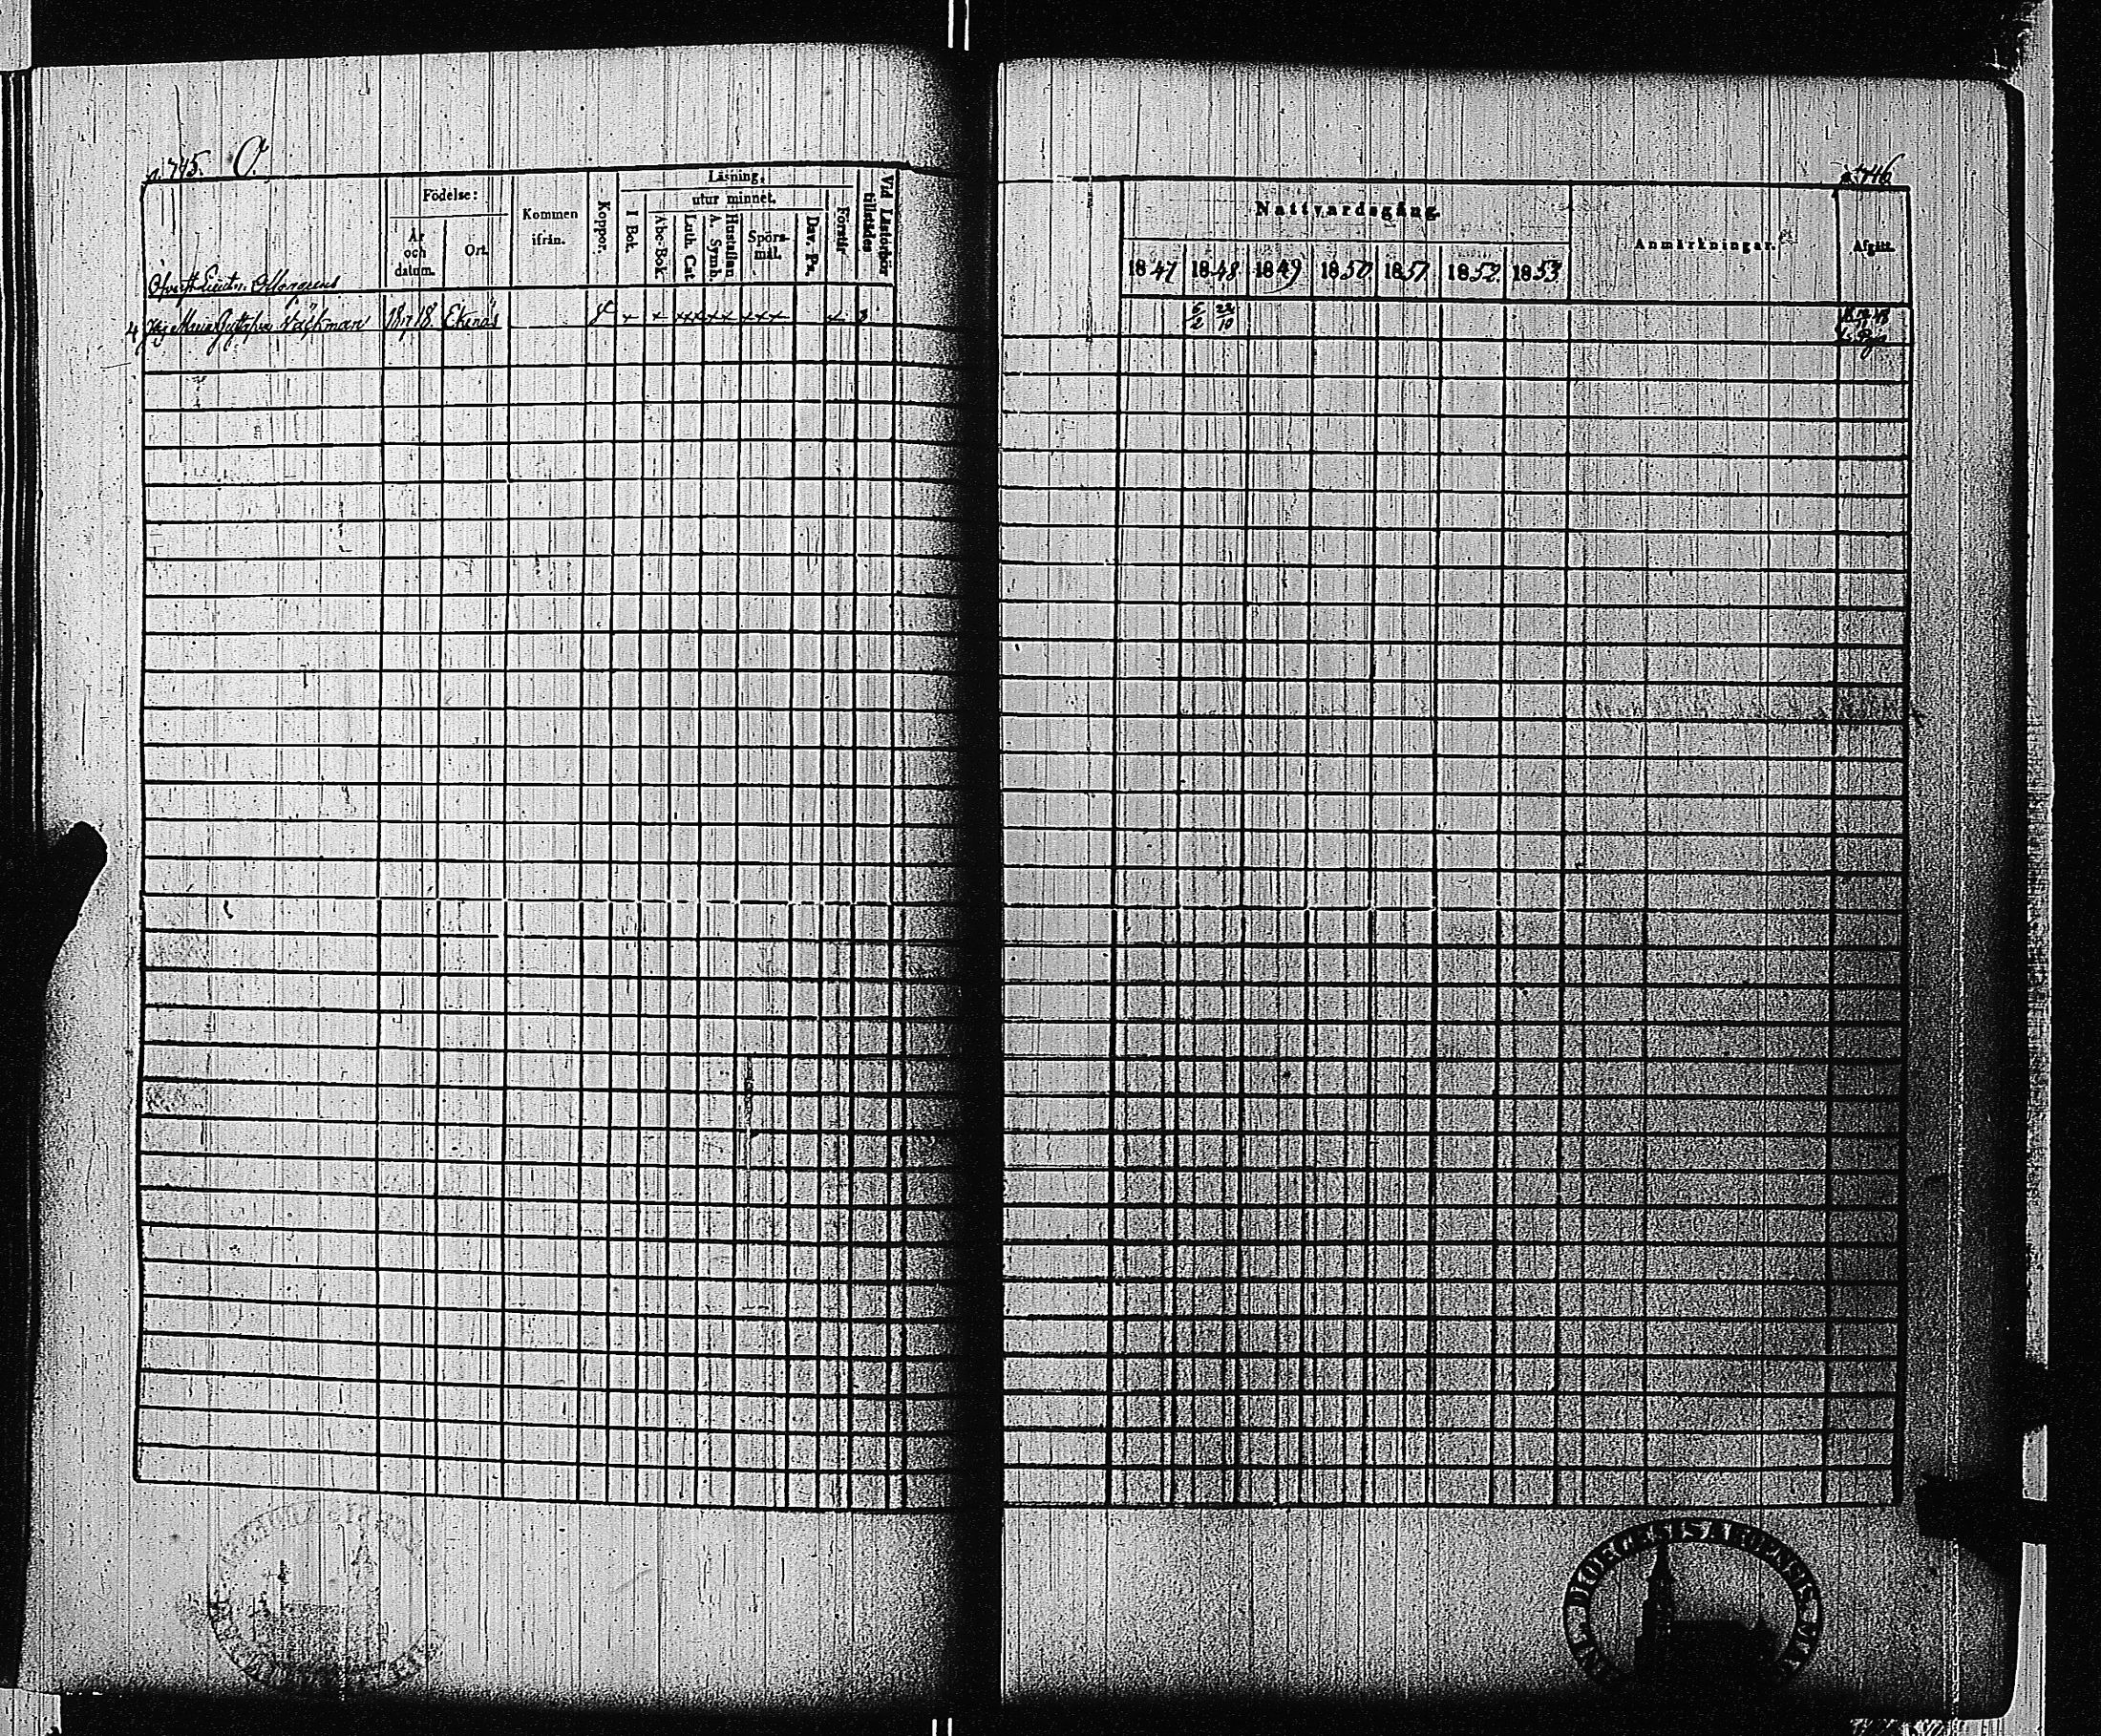 p. 745. O.
Födelse:
År och datum.
Ort.
Kommen ifrån.
Koppor.
Läsning.
I Bok.
utur minnet.
Abc-Bok.
Luth. Cat.
Hustaflan A. Symb.
Spörsmål.
Dav. Ps.
Förstår
Vid Läsförhör tillstädes
Öfverst Lieutn.
4 Maria Gustafva 18 18 Ekenäs
p. 746
Nattvardsgång.
1847 1848 1849 1850 1851 1852 1853
Anmärkningar.
Afgått.
6/2 22/10
DIOECESIS ABOENSIS